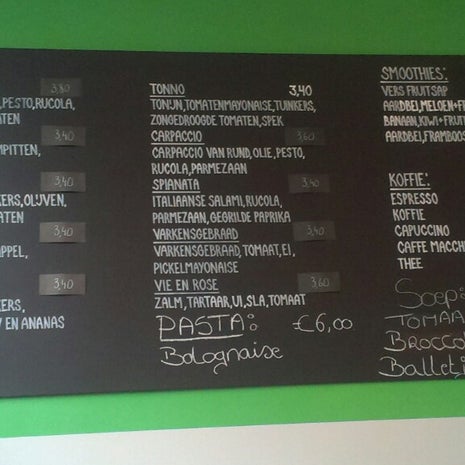 3,80
,PESTO,RUCOLA,
ATEN
3,40
MPITTEN,
3,40
KERS,OLIJVEN,
ATEN
3,40
APPEL,
3,40
KERS,
EN ANANAS
TONNO 3,40
TONIJN,TOMATENMAYONAISE,TUINKERS,
ZONGEDROOGDE TOMATEN,SPEK
CARPACCIO 3,60
CARPACCIO VAN RUND,OLIE,PESTO,
RUCOLA,PARMEZAAN
SPIANATA 3,40
ITALIAANSE SALAMI,RUCOLA,
PARMEZAAN,GEGRILDE PAPRIKA
VARKENSGEBRAAD 3,40
VARKENSGEBRAAD,TOMAAT,EI,
PICKELMAYONAISE
VIE EN ROSE 3,60
ZALM,TARTAAR,UI,SLA,TOMAAT
PASTA: €6,00
Bolognaise
SMOOTHIES:
VERS FRUITSAP
AARDBEI,MELOEN+F
BANAAN,KIWI+FRU
AARDBEI,FRAMBOOS
KOFFIE:
ESPRESSO
KOFFIE
CAPUCCINO
CAFFE MACCH
THEE
Soep:
TOMAA
BROCCO
Balleti